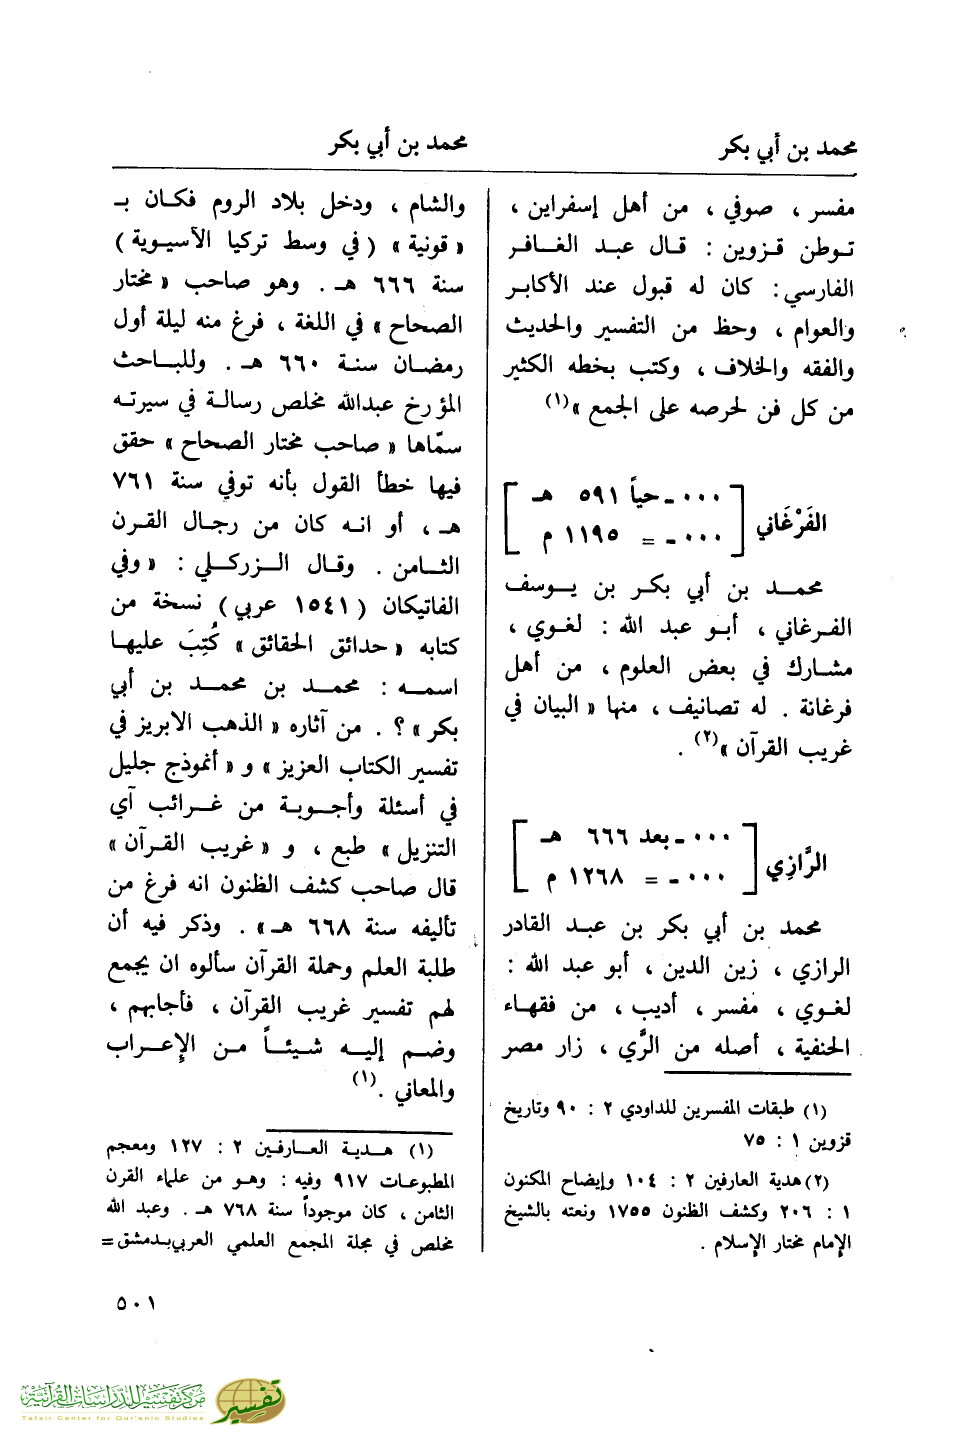 محمد بن أبي بكر
محمد بن أبي بكر
مفسر ، صوفي ، من أهل إسفراين ،
توطن قزوين : قال عبد الغافر
الفارسي : كان له قبول عند الأكابر
والعوام ، وحظ من التفسير والحديث
والفقه والخلاف ، وكتب بخطه الكثير
من كل فن لحرصه على الجمع »(١)
الفَرْغَاني [ ٠٠٠ ـ حياً ٥٩١ هـ
٠٠٠ ـ = ١١٩٥ م ]
محمد بن أبي بكر بن يوسف
الفرغاني ، أبو عبد الله : لغوي ،
مشارك في بعض العلوم ، من أهل
فرغانة . له تصانيف ، منها « البيان في
غريب القرآن »(٢) .
الرَّازِي [ ٠٠٠ ـ بعد ٦٦٦ هـ
٠٠٠ ـ = ١٢٦٨ م ]
محمد بن أبي بكر بن عبد القادر
الرازي ، زين الدين ، أبو عبد الله :
لغوي ، مفسر ، أديب ، من فقهاء
الحنفية ، أصله من الرَّي ، زار مصر
(١) طبقات المفسرين للداودي ٢ : ٩٠ وتاريخ
قزوين ١ : ٧٥
(٢) هدية العارفين ٢ : ١٠٤ وإيضاح المكنون
١ : ٢٠٦ وكشف الظنون ١٧٥٥ ونعته بالشيخ
الإمام مختار الإسلام .
والشام ، ودخل بلاد الروم فكان بـ
« قونية » ( في وسط تركيا الآسيوية )
سنة ٦٦٦ هـ . وهو صاحب « مختار
الصحاح » في اللغة ، فرغ منه ليلة أول
رمضان سنة ٦٦٠ هـ . وللباحث
المؤرخ عبدالله مخلص رسالة في سيرته
سمّاها « صاحب مختار الصحاح » حقق
فيها خطأ القول بأنه توفي سنة ٧٦١
هـ ، أو انه كان من رجال القرن
الثامن . وقال الزركلي : « وفي
الفاتيكان ( ١٥٤١ عربي ) نسخة من
كتابه « حدائق الحقائق » كُتِبَ عليها
اسمه : محمد بن محمد بن أبي
بكر » ؟ . من آثاره « الذهب الابريز في
تفسير الكتاب العزيز » و « أنموذج جليل
في أسئلة وأجوبة من غرائب آي
التنزيل » طبع ، و « غريب القرآن »
قال صاحب كشف الظنون انه فرغ من
تأليفه سنة ٦٦٨ هـ » . وذكر فيه أن
طلبة العلم وحملة القرآن سألوه ان يجمع
لهم تفسير غريب القرآن ، فأجابهم ،
وضم إليه شيئاً من الإعراب
والمعاني .(١)
(١) هدية العارفين ٢ : ١٢٧ ومعجم
المطبوعات ٩١٧ وفيه : وهو من علماء القرن
الثامن ، كان موجوداً سنة ٧٦٨ هـ . وعبد الله
مخلص في مجلة المجمع العلمي العربي بدمشق =
٥٠١
مركز تفسير للدراسات القرآنية
Tafsir Center for Qur'anic Studies
تفسير